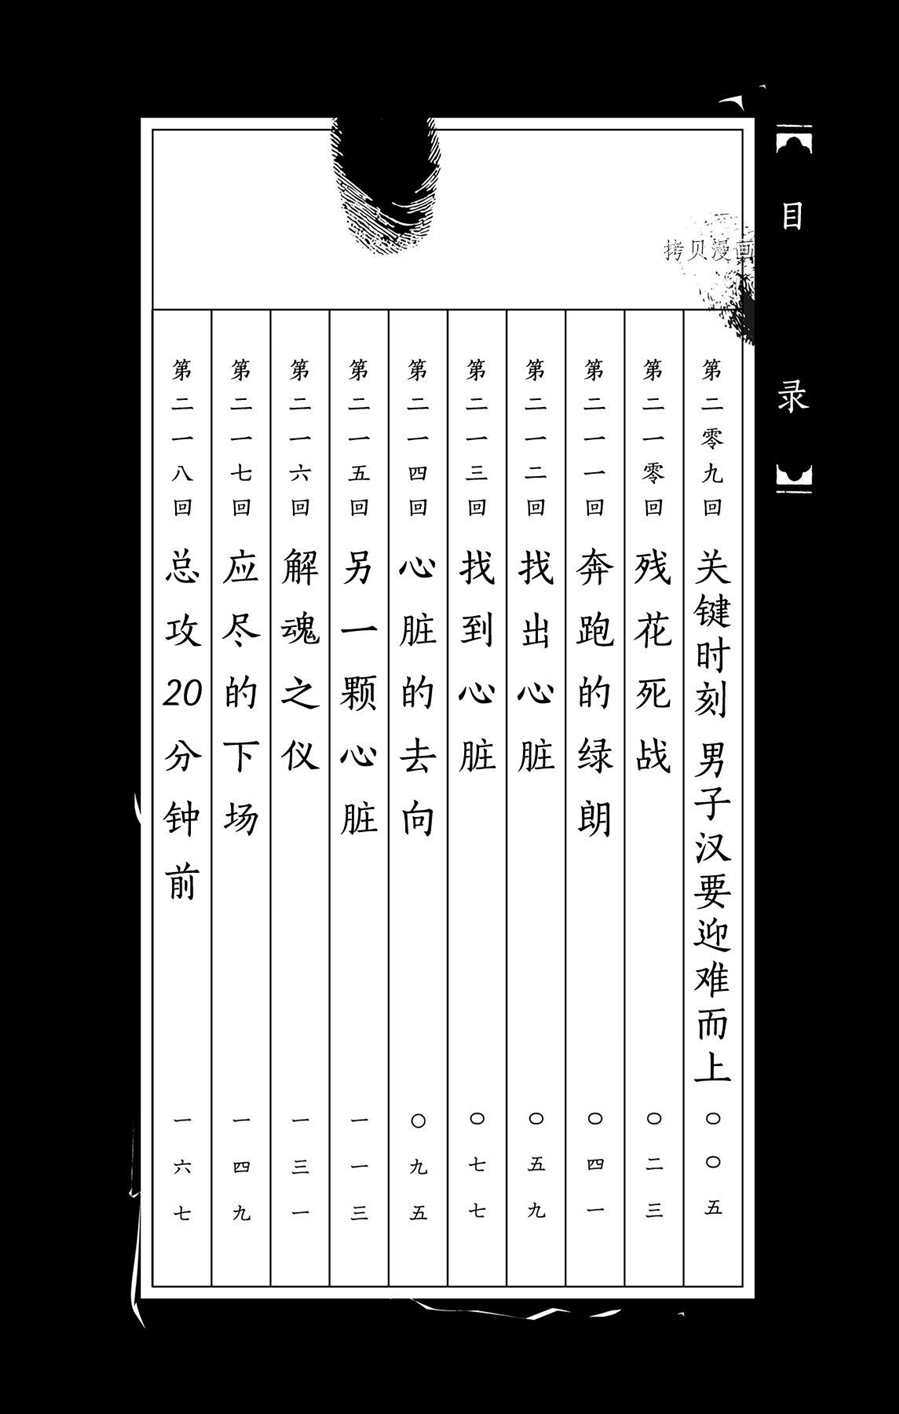 目录
拷贝漫画
第二零九回 关键时刻 男子汉要迎难而上 〇〇五
第二一零回 残花死战 〇二三
第二一一回 奔跑的绿朗 〇四一
第二一二回 找出心脏 〇五九
第二一三回 找到心脏 〇七七
第二一四回 心脏的去向 〇九五
第二一五回 另一颗心脏 一一三
第二一六回 解魂之仪 一三一
第二一七回 应尽的下场 一四九
第二一八回 总攻20分钟前 一六七